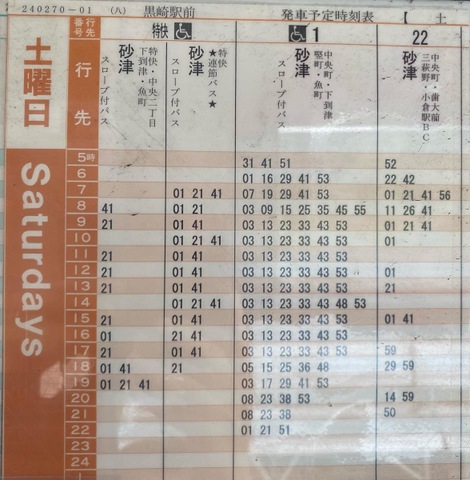 240270-01 (八) 黒崎駅前 発車予定時刻表 【 土
土曜日
Saturdays
行先
番号
特快 1 22
行先
特快・中央二丁目
下到津・魚町
砂津
スロープ付バス
特快
★連節バス★
砂津
スロープ付バス
中央町・下到津
竪町・魚町
砂津
スロープ付バス
中央町・歯大前
三萩野・小倉駅BC
砂津
5時 31 41 51 52
6 01 16 29 41 53 22 42
7 01 21 41 07 19 29 41 53 01 21 41 56
8 41 01 21 03 09 15 25 35 45 55 11 26 41
9 21 01 41 03 13 23 33 43 53 01 21 41
10 01 21 41 03 13 23 33 43 53 01
11 21 01 41 03 13 23 33 43 53
12 21 01 41 03 13 23 33 43 53 01
13 21 01 41 03 13 23 33 43 53 21
14 01 21 41 03 13 23 33 43 48 53
15 21 01 41 03 13 23 33 43 53 01 41
16 01 21 41 03 13 23 33 43 53
17 21 01 41 03 13 23 33 43 53 59
18 01 41 21 05 15 25 36 48 29 59
19 01 21 41 03 17 29 41 53
20 08 23 38 53 14 59
21 08 23 38 50
22 01 21 51
23
24